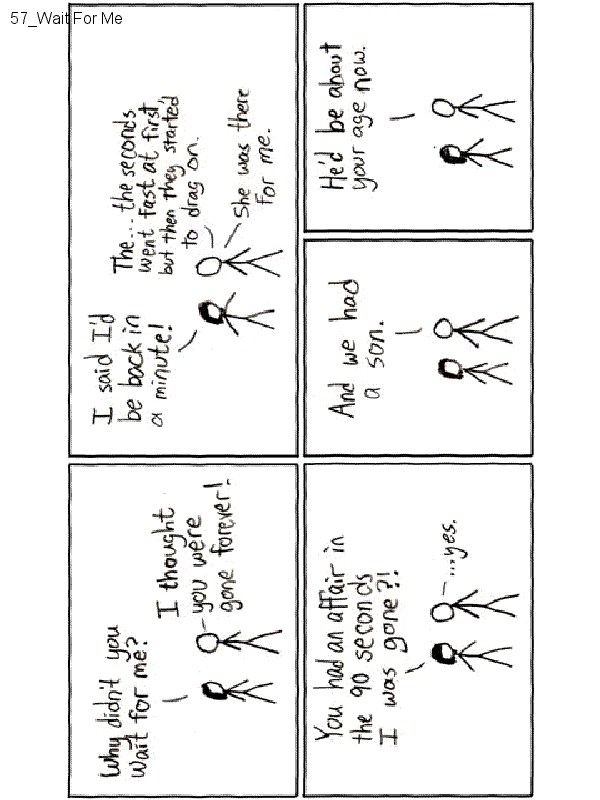 57_Wait For Me
Why didn't you
wait for me?
I thought
you were
gone forever!
I said I'd
be back in
a minute!
The... the seconds
went fast at first
but then they started
to drag on.
She was there
for me.
You had an affair in
the 90 seconds
I was gone?!
...yes.
And we had
a son.
He'd be about
your age now.